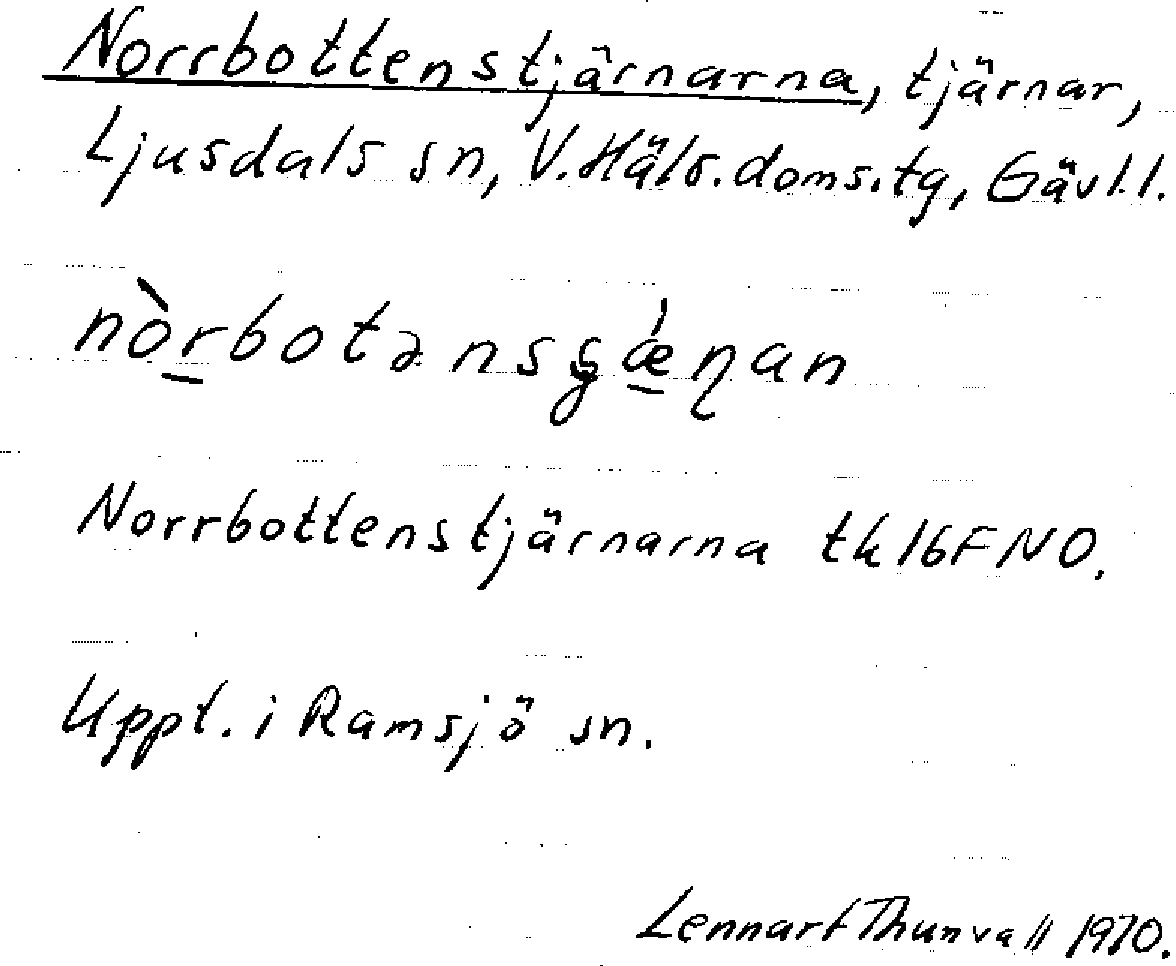 Norrbottenstjärnarna, tjärnar,
Ljusdals sn, V. Häls. doms.tg, Gävl.l.
nò̱rbotənsʂǽ̱ɳan
Norrbottenstjärnarna tk 16F NO.
Uppt. i Ramsjö sn.
Lennart Thunvall 1970.